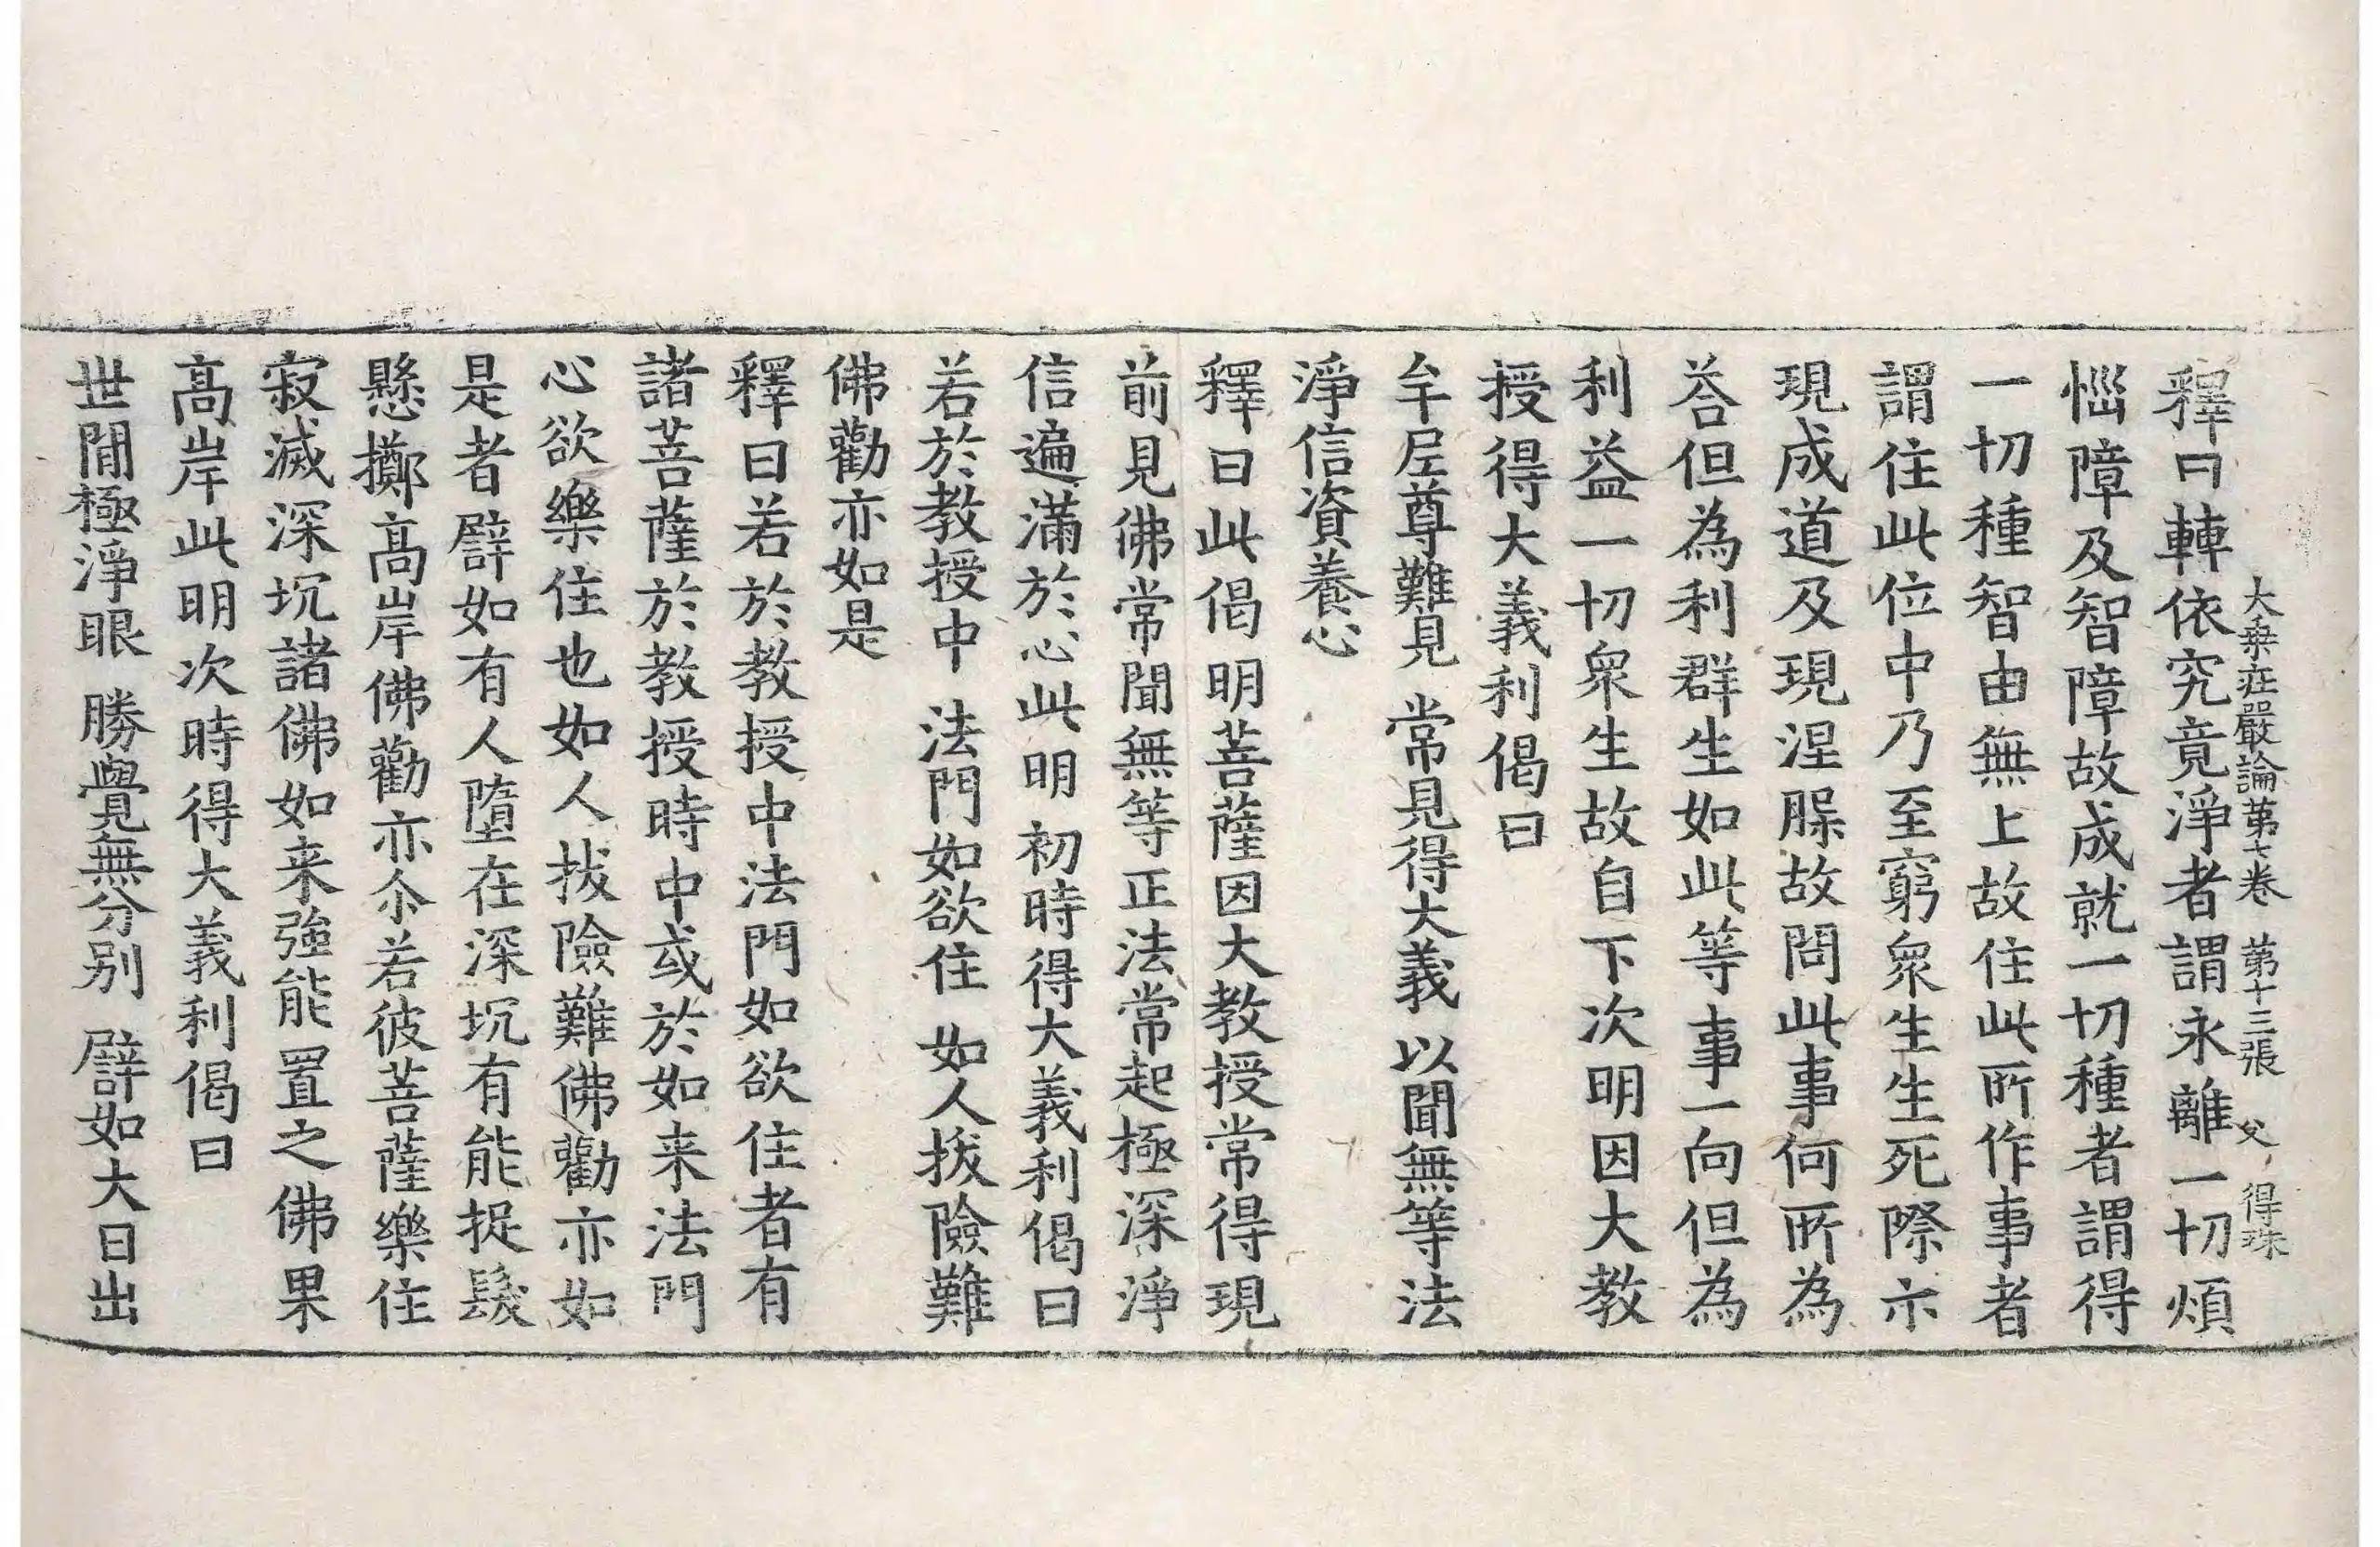 大乗莊嚴論第七卷 第十三張 父 得珠
釋曰轉依究竟淨者謂永離一切煩
惱障及智障故成就一切種者謂得
一切種智由無上故住此所作事者
謂住此位中乃至窮衆生生死際示
現成道及現涅槃故問此事何所為
荅但為利群生如此等事一向但為
利益一切衆生故自下次明因大教
授得大義利偈曰
牟尼尊難見 常見得大義 以聞無等法
淨信資養心
釋曰此偈明菩薩因大教授常得現
前見佛常聞無等正法常起極深淨
信遍滿於心此明初時得大義利偈曰
若於教授中 法門如欲住 如人拔險難
佛勸亦如是
釋曰若於教授中法門如欲住者有
諸菩薩於教授時中或於如来法門
心欲樂住也如人拔險難佛勸亦如
是者譬如有人墮在深坑有能捉髮
懸擲高岸佛勸亦尒若彼菩薩樂住
寂滅深坑諸佛如来強能置之佛果
髙岸此明次時得大義利偈曰
世間極淨眼 勝覺無分別 譬如大日出